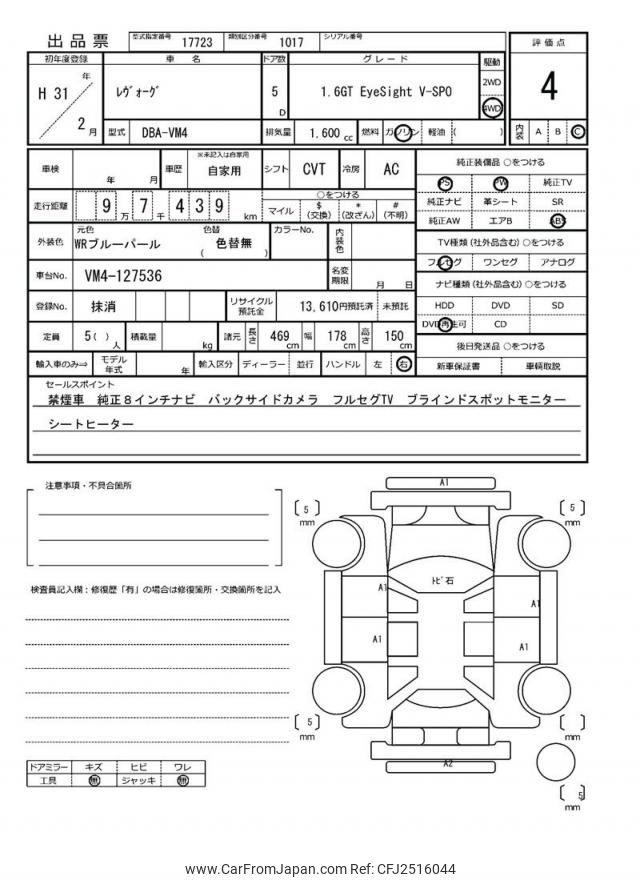 出品票 型式指定番号 17723 類別区分番号 1017 シリアル番号
初年度登録 車 名 ドア数 グレード 駆動 評価点
H 31 年 2 月 ﾚヴｫｰｸﾞ 5 D 1.6GT EyeSight V-SPO 2WD 4WD 4
型式 DBA-VM4 排気量 1.600 cc 燃料 ガソリン 軽油 ( ) 内装 A B C
車検 年 月 車歴 ※未記入は自家用 自家用 シフト CVT 冷房 AC
走行距離 9 万 7 千 4 3 9 km ○をつける マイル $ (交換) * (改ざん) # (不明)
外装色 元色 WRブルーパール 色替 色替無 ( ) カラーNo. 内装色
車台No. VM4-127536 名変期限 月 日
登録No. 抹消 リサイクル預託金 13,610円預託済 未預託
定員 5 ( ) 人 積載量 kg 諸元 長さ 469 cm 幅 178 cm 高さ 150 cm
輸入車のみ⇒ モデル年式 年 輸入区分 ディーラー 並行 ハンドル 左 右
純正装備品 ○をつける
PS PW 純正TV
純正ナビ 革シート SR
純正AW エアB ABS
TV種類 (社外品含む) ○をつける
フルセグ ワンセグ アナログ
ナビ種類 (社外品含む) ○をつける
HDD DVD SD
DVD再生可 CD
後日発送品 ○をつける
新車保証書 車輌取説
セールスポイント
禁煙車 純正８インチナビ バックサイドカメラ フルセグTV ブラインドスポットモニター
シートヒーター
注意事項・不具合箇所
検査員記入欄：修復歴「有」の場合は修復箇所・交換箇所を記入
A1
[ 5 ] mm
[ 5 ] mm
ﾄﾋﾞ石
A1
A1
A1
A1
[ 5 ] mm
[ ] mm
A2
[ 5 ] mm
ドアミラー キズ ヒビ ワレ
工具 無 ジャッキ 無
www.CarFromJapan.com Ref: CFJ2516044